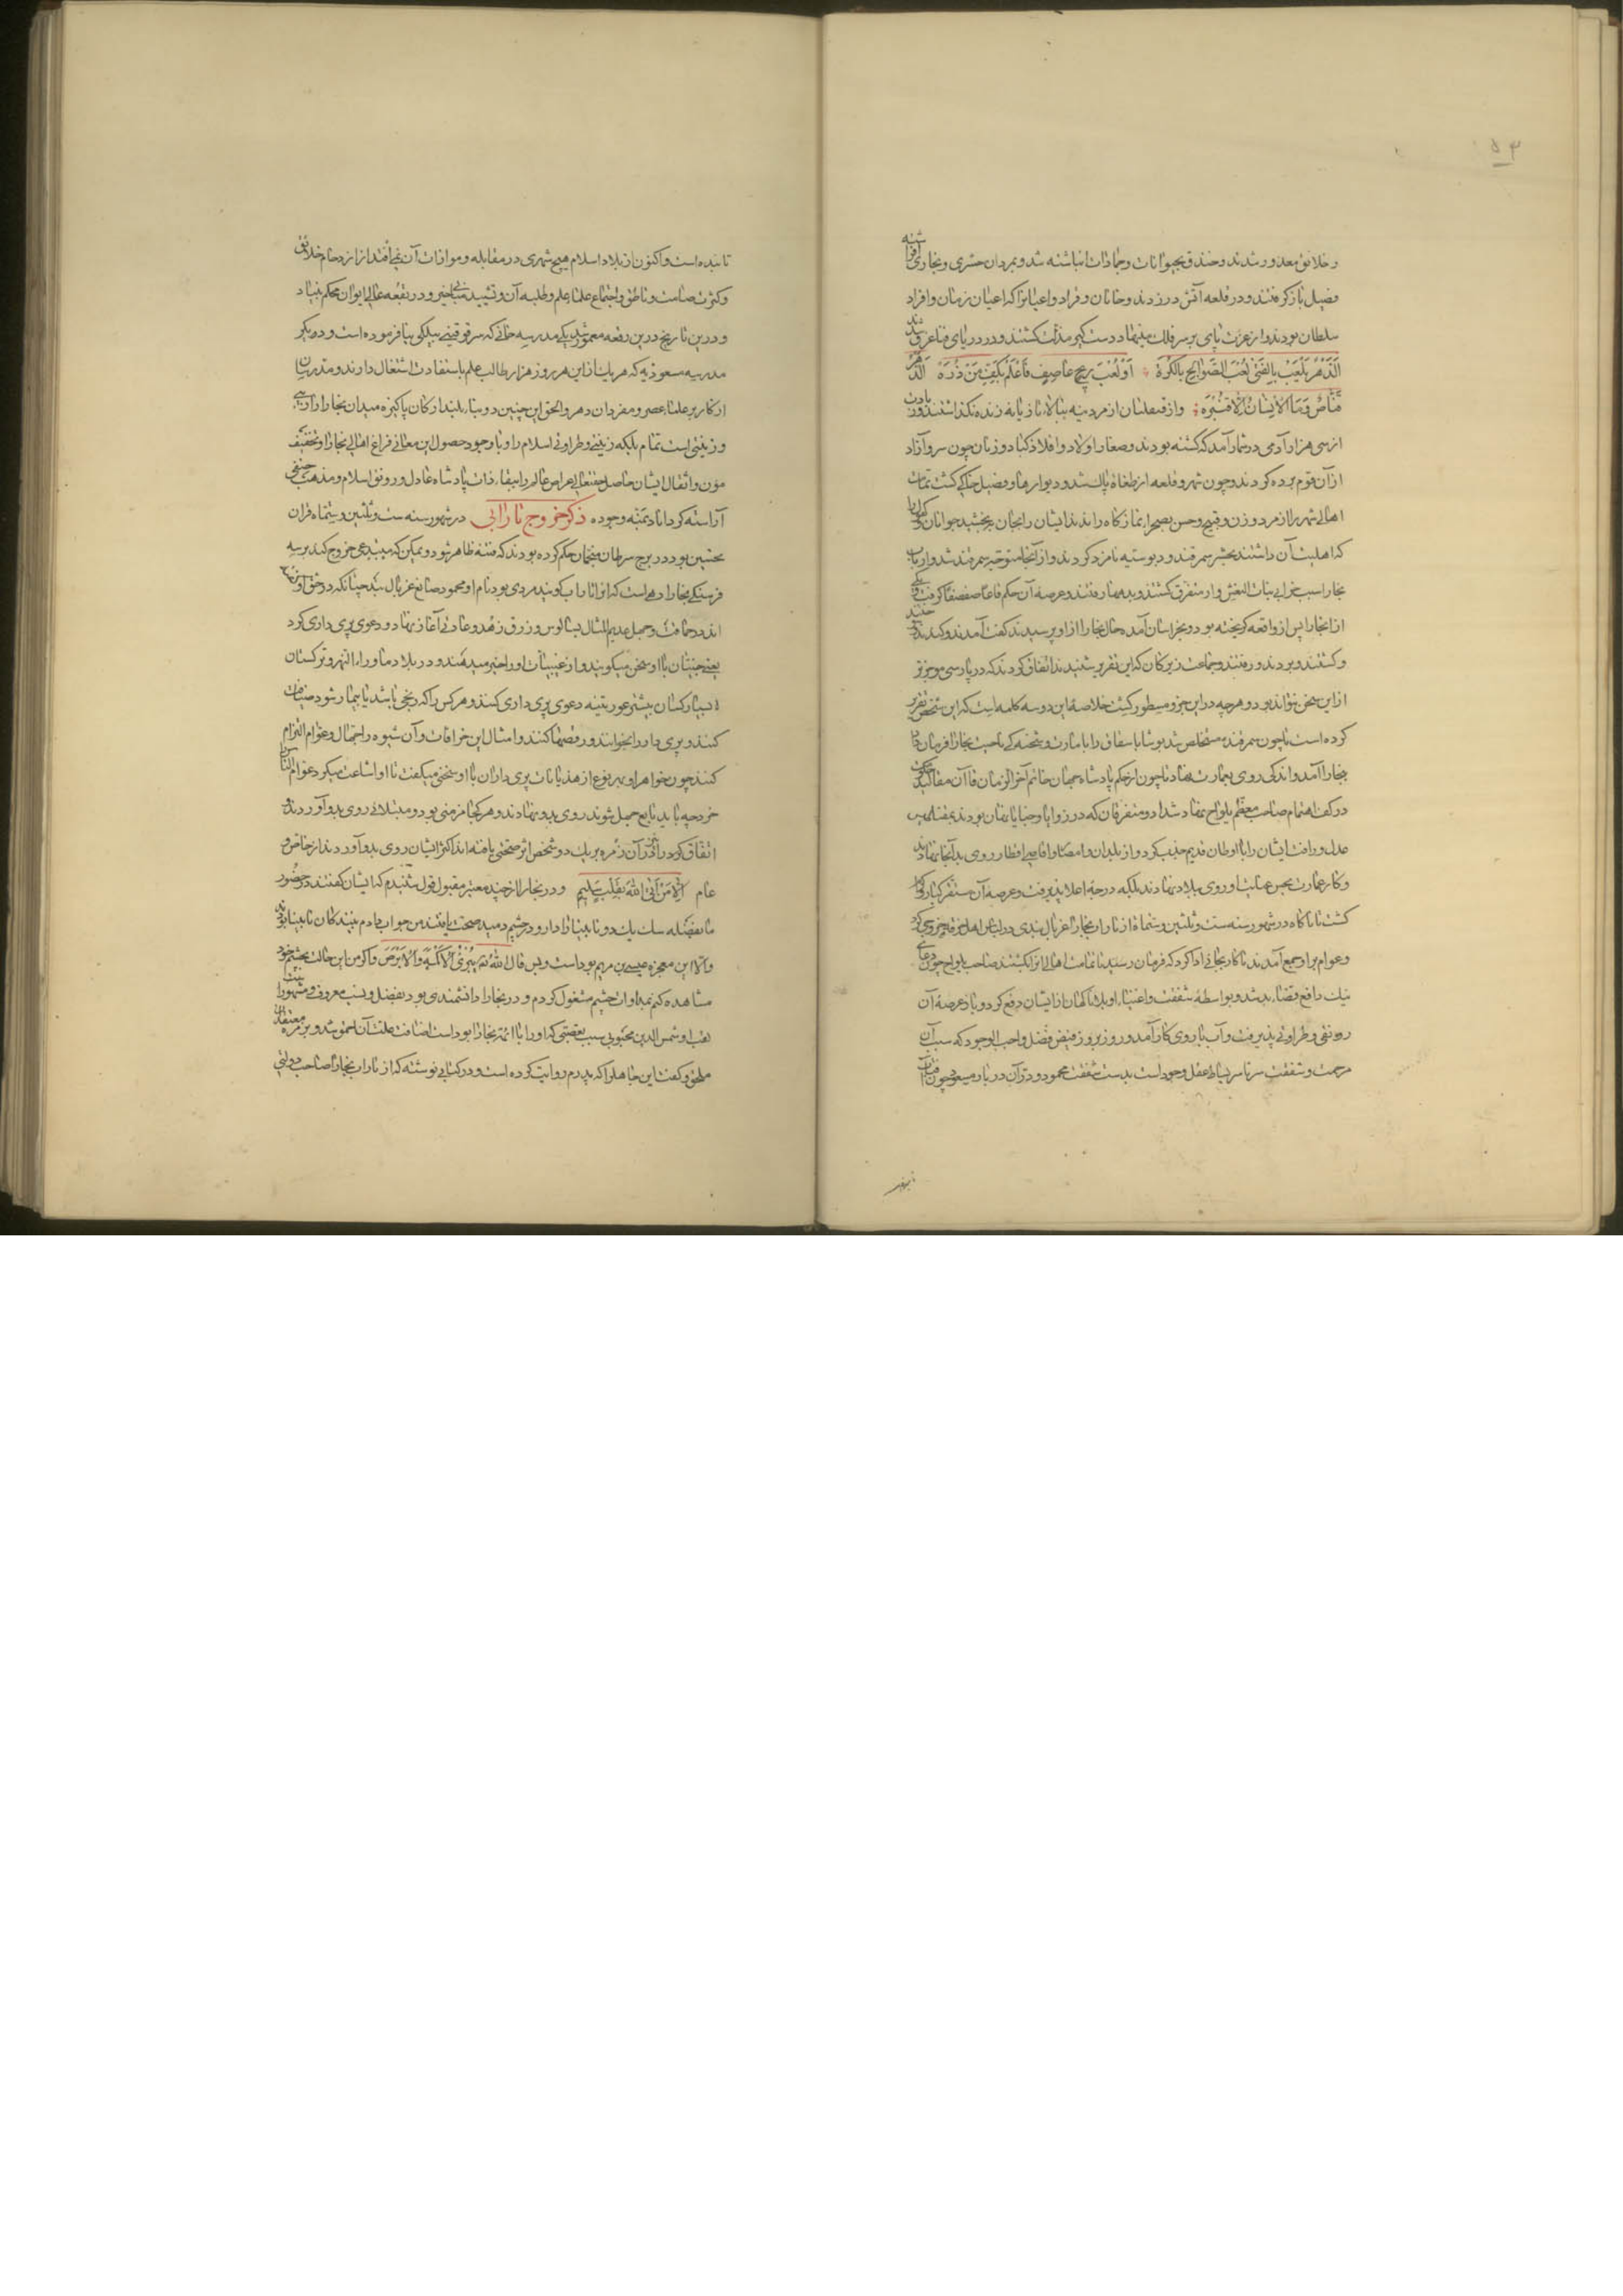 و خلایق معذور شدند و خندق بحیوانات و جمادات انباشته شد و بمردان حشری و بخاری افراشته
فصیل باز گرفتند و در قلعه آتش در زدند و خانان و قواد و اعیان را که اعیان زمان و افراد
سلطان بودند و از عزت پای بر سر فلک مینهادند دستگیر مذلت گشتند و در دریای فنا غرق شدند
الدهر یلعب بالفتی لعب الصوالج بالکره او لعب ریح عاصف فاعلم بکف من ذره الدهر
قناص و ما الانسان الا قنبره و از قنقلیان از مردینه ببالای تازیانه زنده نگذاشتند و زیادت
از سی هزار آدمی در شمار آمد که کشته بودند و صغار اولاد و افلاذ کباد و زنان چون سرو آزاد
از آن قوم برده کردند و چون شهر و قلعه از طغاة پاک شد و دیوارها و فصیل خاک گشت تمامت
اهالی شهر را از مرد و زن و قبیح و حسن بصحرای نمازگاه راندند ایشان را بجان ببخشید جوانان و کهول را
که اهلیت آن داشتند بحشر سمرقند و دبوسیه نامزد کردند و از آنجا متوجه سمرقند شد و ارباب
بخارا سبب خرابی بنات النعش وار متفرق گشتند و بدیهها رفتند و عرصه آن حکم قاعا صفصفا گرفت و یکی
از بخارا پس از واقعه گریخته بود و بخراسان آمده حال بخارا از او پرسیدند گفت آمدند و کندند و سوختند
و کشتند و بردند و رفتند جماعت زیرکان که این تقریر شنیدند اتفاق کردند که در پارسی موجزتر
از این سخن نتواند بود و هرچه در این جزو مسطور گشت خلاصه این دو سه کلمه است که این شخص تقریر
کرده است تا چون سمرقند مستخلص شد توشا باسقاق را با مارت و شحنگی ناحیت بخارا فرمان داد
بخارا آمد و اندکی روی بعمارت نهاد تا چون از حکم پادشاه جهان حاتم آخر الزمان قاآن مقالید حکومت
در کف اهتمام صاحب معظم یلواج نهاده شد از متفرقان که در زوایا و خبایا بمانده بودند بمقناطیس
عدل و رافت ایشان را با اوطان قدیم جذب کرد و از بلدان و امصار و اقاصی اقطار روی بدآنجا نهادند
و کار عمارت بحسن عنایت او روی ببالا نهاد بلکه درجه اعلا پذیرفت و عرصه آن مستقر کبار و کرام
گشت تا ناگاه در شهور سنه ست و ثلثین و ستمائة از تاراب بخارا غربال بندی در لباس اهل خرقه خروج کرد
و عوام بر او جمع آمدند تا کار بجایی ادا کرد که فرمان رسید تا تمامت اهالی آنرا بکشند صاحب یلواج چون دعای
نیک دافع قضای بد شد و بواسطه شفقت و اعتنای او بلای ناگهان از ایشان دفع کرد و باز عرصه آن
رونقی و طراوتی پذیرفت و آب با روی کار آمد و روز بروز فیض فضل واجب الوجود که سبب آن
مرحمت و شفقت سرتاسر بساط عدل وجود است بدست شفقت محمود و در آن دریا مسعود چون آفتاب
تابنده است و اکنون از بلاد اسلام هیچ شهری در مقابله و موازات آن نمی افتد از ازدحام خلایق
و کثرت صامت و ناطق و اجتماع علما علم و طلبه آن و تشیید مبانی خیر و در بقعه عالی ایوان محکم بنیاد
و در این تاریخ درین رقعه معمور شد یکی مدرسه خانی که سرقوقتی بیکی بنا فرموده است و دیگر
مدرسه مسعودیه که هر یک از این هر روز هزار طالب علم باستفادت اشتغال دارند و مدرسان
از کابر علما عصر و مفردان دهر و الحق این چنین دو بنا بلند ارکان پاکیزه میدان بخارا را آرایشی
و زینتی است تمام بلکه زینتی و طراوتی اسلام را و با وجود حصول این معانی فراغ اهالی بخارا و تخفیف
مؤن و اثقال ایشان حاصل حقتعالی عراص عالم را ببقاء ذات پادشاه عادل و رونق اسلام و مذهب حنیفی
آراسته کرداناد بمنه وجوده ذکر خروج تارابی در شهور سنه ست و ثلثین و ستمائه قران
نحسین بود در برج سرطان منجمان حکم کرده بودند که فتنه ظاهر شود و یمکن که مبتدعی خروج کند بر سه
فرسنگی بخارا دهی است که آنرا تاراب گویند مردی بود نام او محمود صانع غربال بند چنانکه در حق او گفته
اند در حماقت و جهل عدیم المثال بسالوس و زرق زهد و عبادتی آغاز نهاد و دعوی پری داری کرد
یعنی جنیان با او سخن میگویند و از غیبیات او را خبر میدهند و در بلاد ماوراء النهر و ترکستان
بسیار کسان بیشتر عورتینه دعوی پری داری کنند و هر کس را که رنجی باشد یا بیمار شود ضیافت
کنند و پری دار را بخوانند و رقصها کنند و امثال این خرافات و آن شیوه را جهال و عوام التزام
کنند چون خواهر او بهر نوع از هذیانات پری داران با او سخنی میگفت تا او اشاعت میکرد عوام الناس را
خود چه باید تا تبع جهل شوند روی بدو نهادند و هر کجا مزمنی بود و مبتلائی روی بدو آوردند
اتفاق کردند در آن زمره بر یک دو شخص اثر صحتی یافته اند اکثر ایشان روی بدو آوردند از خاص و
عام الا من اتی الله بقلب سلیم و در بخارا از چند معتبر مقبول قول شنیدم که ایشان گفتند در حضور
ما بفضله سگ یک دو نابینا را دارو در چشم دمید صحت یافتند من جواب دادم بینندگان نابینا بودند
والا این معجزه عیسی بن مریم بوداست و بس قال الله تعالی یبرئ الاکمه و الابرص و اگر من این حالت بچشم خود
مشاهده کنم بمداوات چشم مشغول گردم و در بخارا دانشمندی بود بفضل و نسب معروف و مشهور
لقب او شمس الدین محبوبی سبب تعصبی که او را با ائمه بخارا بود است اضافت علت آن احمق شد و بزمره معتقدان
ملحق و گفت این جاهل را که پدرم روایت کرده است و در کتابی نوشته که از تاراب بخارا صاحب دولتی